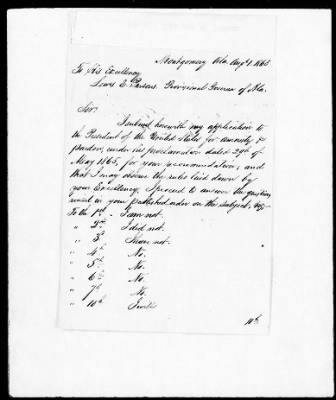 Montgomery Ala. Aug 1 1865
To His Excellency
Lewis E. Parsons, Provisional Governor of Ala.
Sir.
I submit herewith my application to
the President of the United States for amnesty &
pardon, under his proclamation dated 29th of
May 1865, for your recommendation, and
that I may observe the rules laid down by
your Excellency, I proceed to answer the questions
in your published order on the subject,
To the 1st - I am not.
" 2d - I did not.
" 3d I have not.
" 4th No.
" 5th No.
" 6th No.
" 7th No.
" 10th
10th